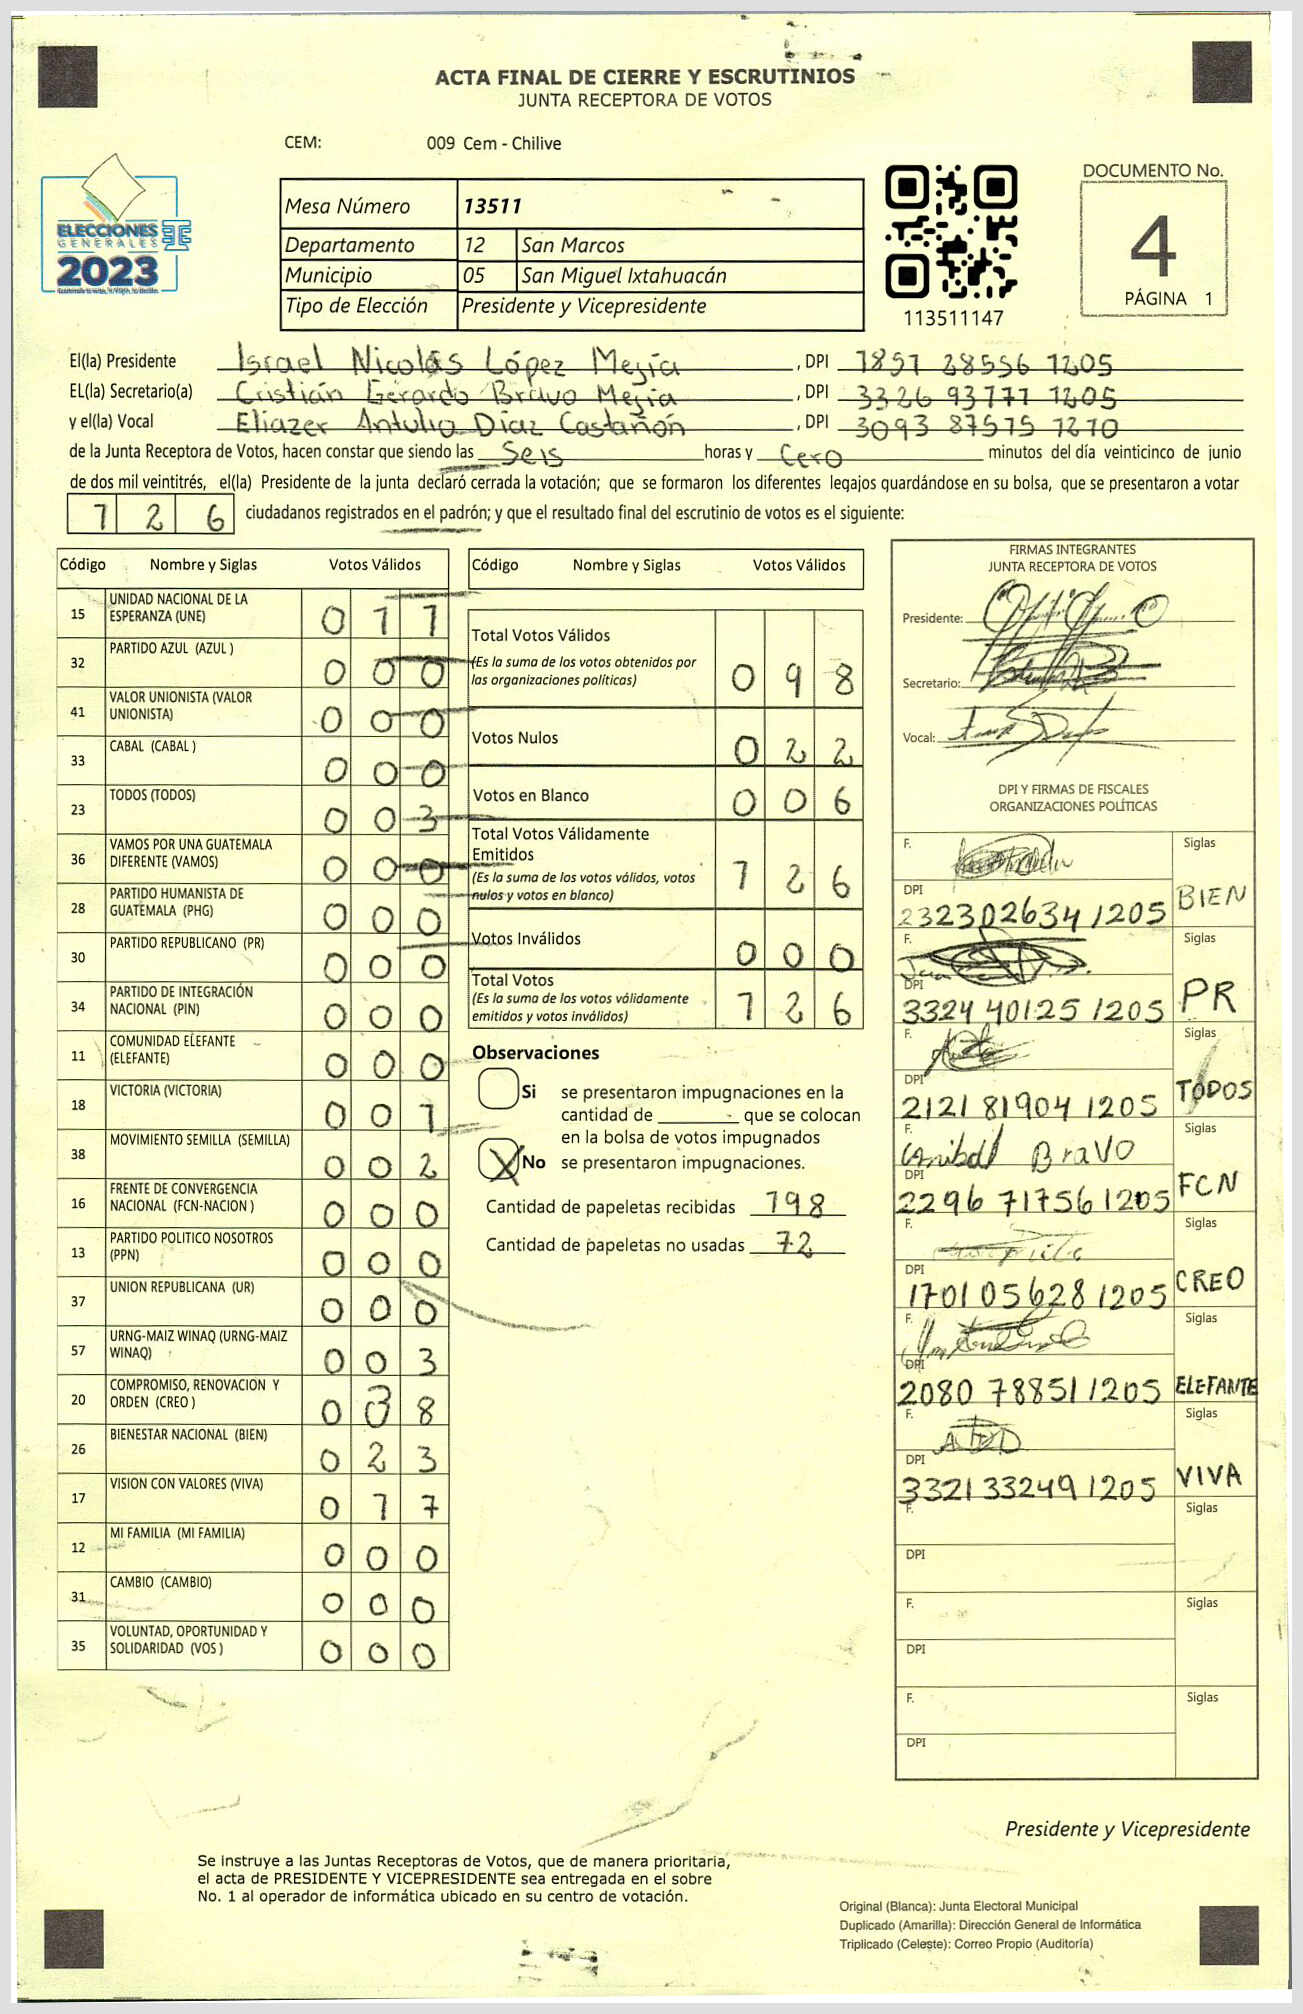 ACTA FINAL DE CIERRE Y ESCRUTINIOS
JUNTA RECEPTORA DE VOTOS
CEM: 009 Cem - Chilive
ELECCIONES
GENERALES
2023
Mesa Número 13511
Departamento 12 San Marcos
Municipio 05 San Miguel Ixtahuacán
Tipo de Elección Presidente y Vicepresidente
113511147
DOCUMENTO No.
4
PÁGINA 1
El(la) Presidente Israel Nicolás López Mejía, DPI 1851 28556 1205
EL(la) Secretario(a) Cristián Gerardo Bravo Mejía, DPI 3326 93777 1205
y el(la) Vocal Eliazer Antulio Díaz Castañón, DPI 3093 87575 1210
de la Junta Receptora de Votos, hacen constar que siendo las Seis horas y Cero minutos del día veinticinco de junio
de dos mil veintitrés, el(la) Presidente de la junta declaró cerrada la votación; que se formaron los diferentes legajos guardándose en su bolsa, que se presentaron a votar
126 ciudadanos registrados en el padrón; y que el resultado final del escrutinio de votos es el siguiente:
Código Nombre y Siglas Votos Válidos
15 UNIDAD NACIONAL DE LA ESPERANZA (UNE) 0 1 1
32 PARTIDO AZUL (AZUL ) 0 0 0
41 VALOR UNIONISTA (VALOR UNIONISTA) 0 0 0
33 CABAL (CABAL ) 0 0 0
23 TODOS (TODOS) 0 0 3
36 VAMOS POR UNA GUATEMALA DIFERENTE (VAMOS) 0 0 0
28 PARTIDO HUMANISTA DE GUATEMALA (PHG) 0 0 0
30 PARTIDO REPUBLICANO (PR) 0 0 0
34 PARTIDO DE INTEGRACIÓN NACIONAL (PIN) 0 0 0
11 COMUNIDAD ELEFANTE (ELEFANTE) 0 0 0
18 VICTORIA (VICTORIA) 0 0 1
38 MOVIMIENTO SEMILLA (SEMILLA) 0 0 2
16 FRENTE DE CONVERGENCIA NACIONAL (FCN-NACION ) 0 0 0
13 PARTIDO POLITICO NOSOTROS (PPN) 0 0 0
37 UNION REPUBLICANA (UR) 0 0 0
57 URNG-MAIZ WINAQ (URNG-MAIZ WINAQ) 0 0 3
20 COMPROMISO, RENOVACION Y ORDEN (CREO ) 0 3 8
26 BIENESTAR NACIONAL (BIEN) 0 2 3
17 VISION CON VALORES (VIVA) 0 1 7
12 MI FAMILIA (MI FAMILIA) 0 0 0
31 CAMBIO (CAMBIO) 0 0 0
35 VOLUNTAD, OPORTUNIDAD Y SOLIDARIDAD (VOS ) 0 0 0
Código Nombre y Siglas Votos Válidos
Total Votos Válidos 0 9 8
(Es la suma de los votos obtenidos por
las organizaciones políticas)
Votos Nulos 0 2 2
Votos en Blanco 0 0 6
Total Votos Válidamente
Emitidos 1 2 6
(Es la suma de los votos válidos, votos
nulos y votos en blanco)
Votos Inválidos 0 0 0
Total Votos 1 2 6
(Es la suma de los votos válidamente
emitidos y votos inválidos)
Observaciones
Si se presentaron impugnaciones en la
cantidad de ______ que se colocan
en la bolsa de votos impugnados
X No se presentaron impugnaciones.
Cantidad de papeletas recibidas 198
Cantidad de papeletas no usadas 72
FIRMAS INTEGRANTES
JUNTA RECEPTORA DE VOTOS
Presidente:
Secretario:
Vocal:
DPI Y FIRMAS DE FISCALES
ORGANIZACIONES POLÍTICAS
F. Siglas
DPI 2323026341205 BIEN
F. Siglas
DPI 3324 40125 1205 PR
F. Siglas
DPI 2121 81904 1205 TODOS
F. Anibal Bravo Siglas
DPI 2296 71756 1205 FCN
F. Siglas
DPI 1701 05628 1205 CREO
F. Siglas
DPI 2080 78851 1205 ELEFANTE
F. Siglas
DPI 3321 33249 1205 VIVA
F. Siglas
DPI
F. Siglas
DPI
F. Siglas
DPI
Presidente y Vicepresidente
Se instruye a las Juntas Receptoras de Votos, que de manera prioritaria,
el acta de PRESIDENTE Y VICEPRESIDENTE sea entregada en el sobre
No. 1 al operador de informática ubicado en su centro de votación.
Original (Blanca): Junta Electoral Municipal
Duplicado (Amarilla): Dirección General de Informática
Triplicado (Celeste): Correo Propio (Auditoría)